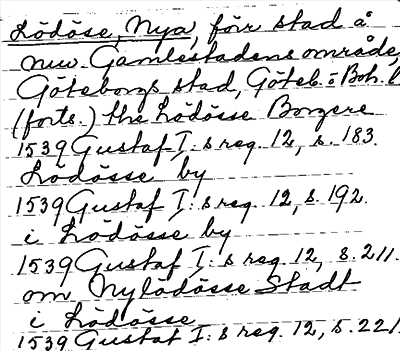 Lödöse, Nya, förr stad å
nuv. Gamlestadens område,
Göteborgs stad, Göteb. o Boh. l
(forts.) the Lödösse Borgere
1539 Gustaf I:s reg. 12, s. 183.
Lödösse by
1539 Gustaf I:s reg. 12, s. 192.
i Lödösse by
1539 Gustaf I:s reg. 12, s. 211.
om Nylödösse Stadt
i Lödösse
1539 Gustaf I:s reg. 12, s. 221